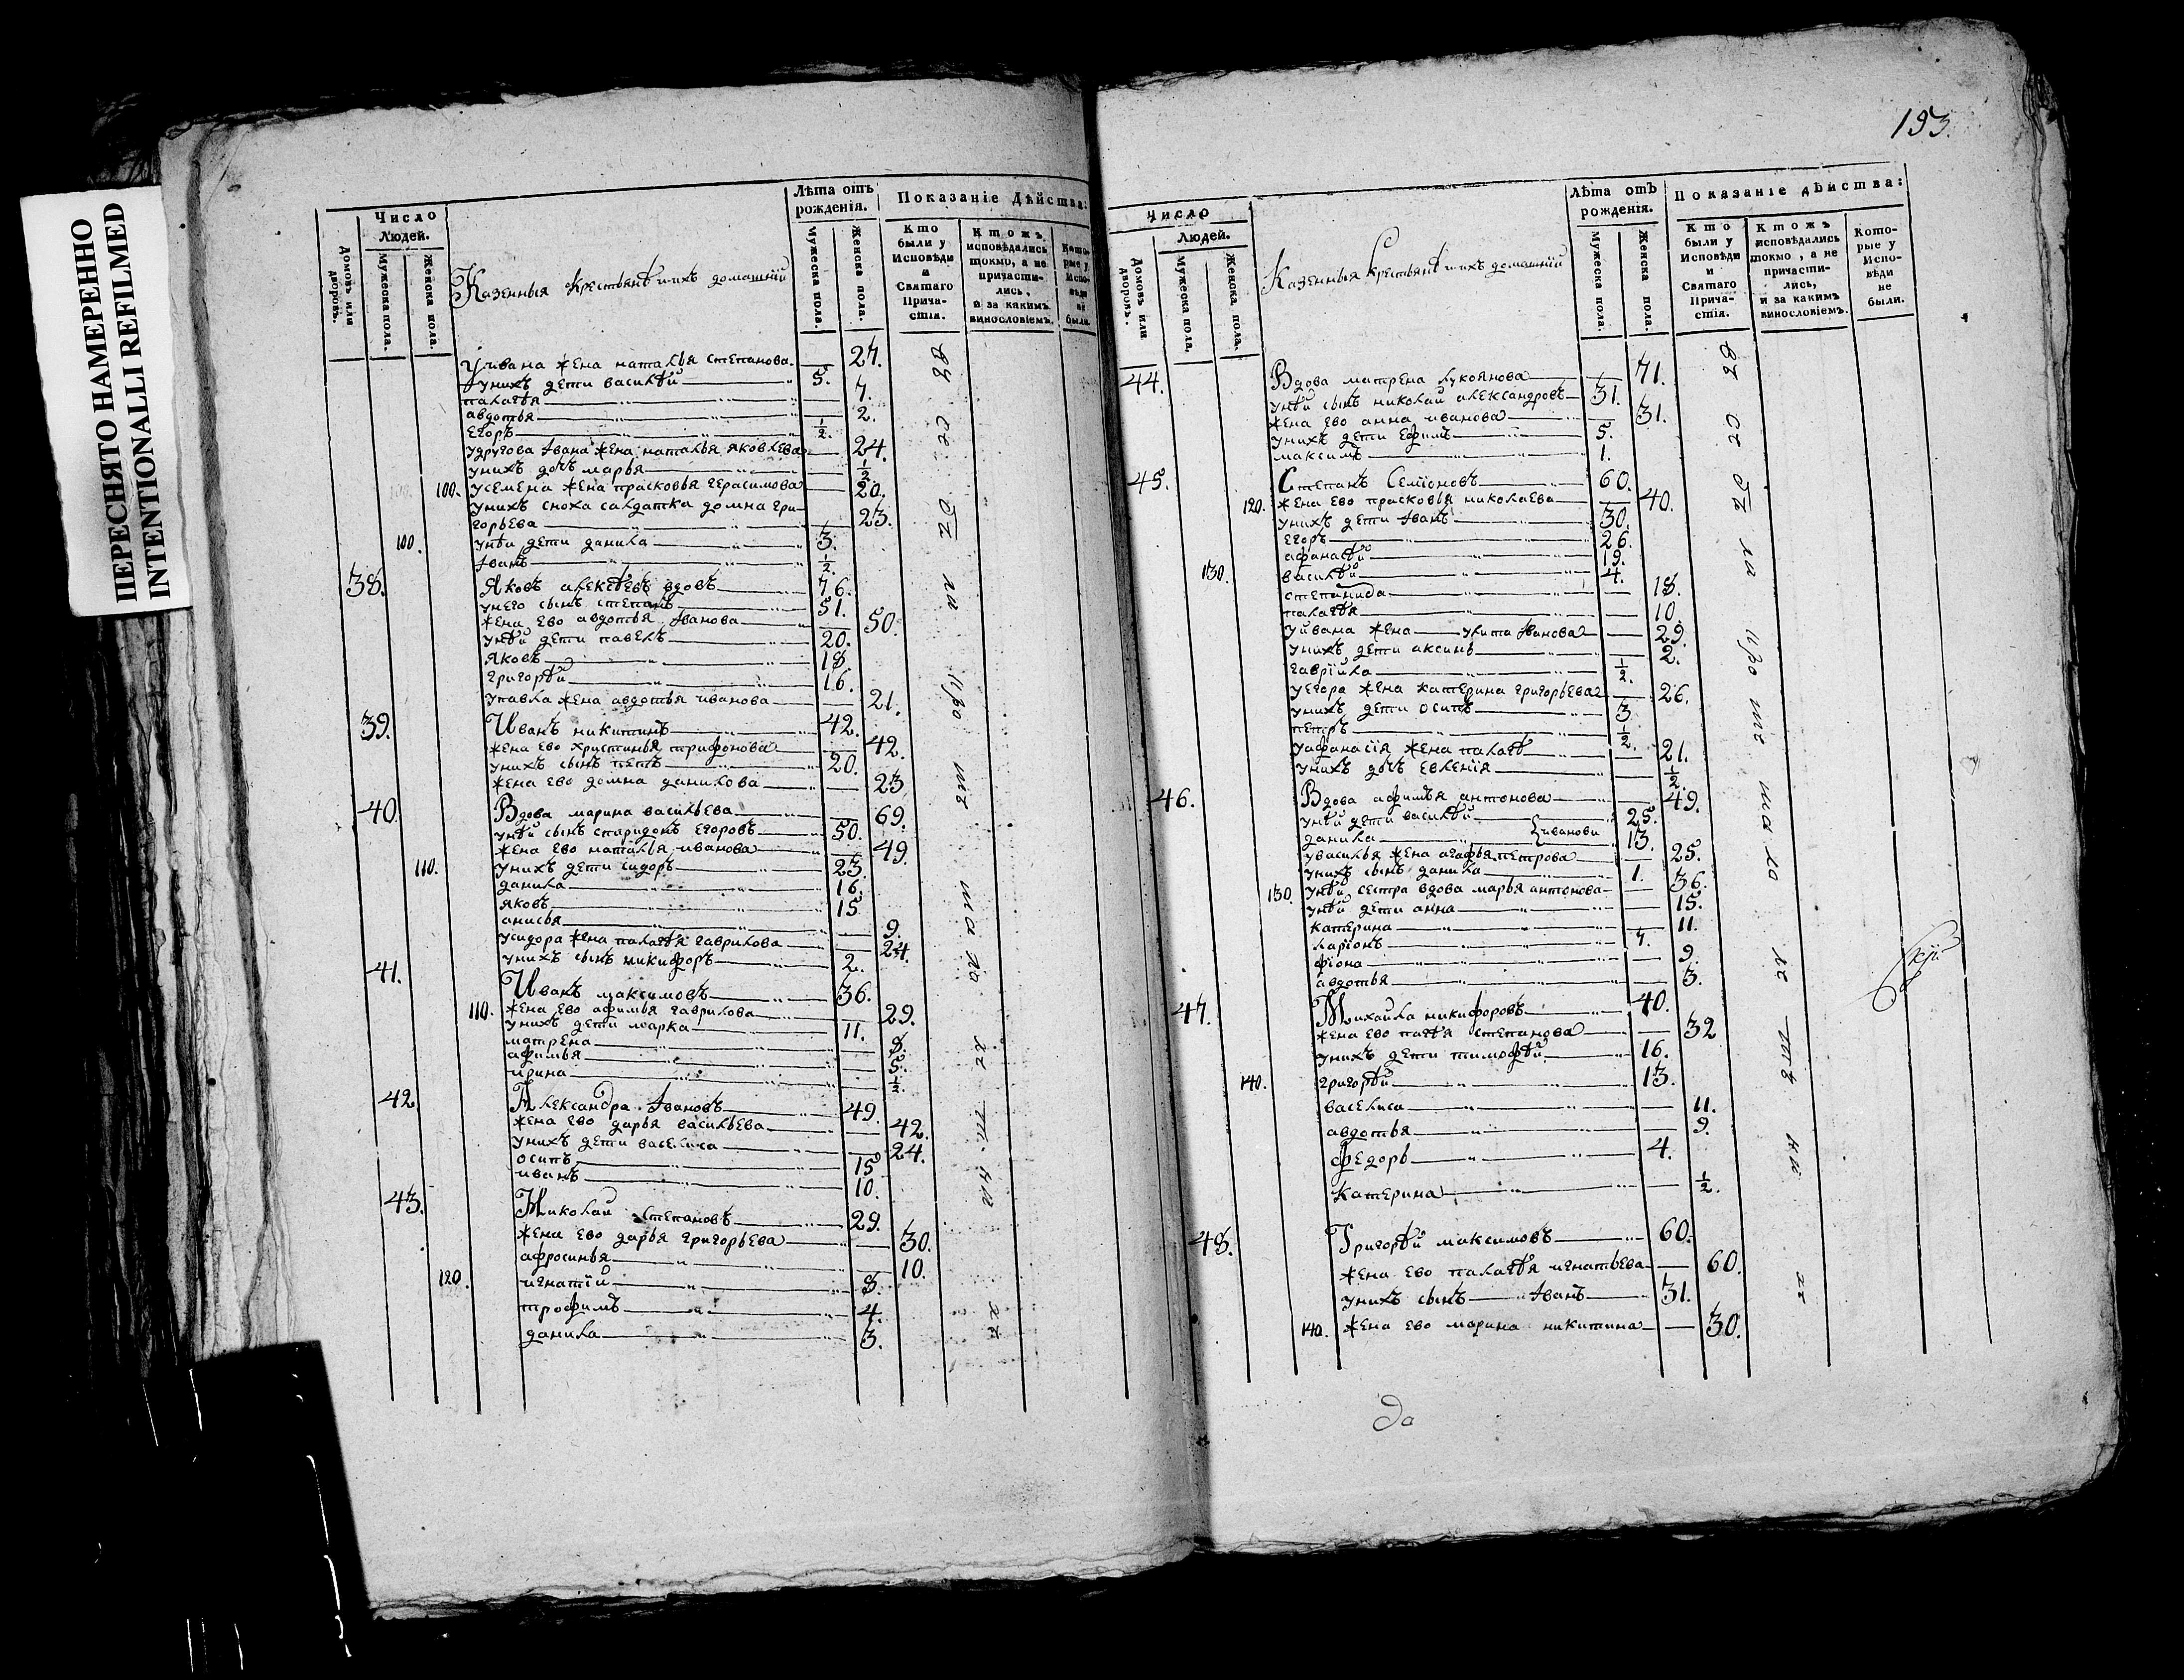 ПЕРЕСНЯТО НАМЕРЕННО
INTENTIONALLI REFILMED
Число
Людей.
Домовъ или дворовъ.
Мужеска пола.
Женска пола.
Казенныя крестьянѣ и ихъ домашнїй
Лѣта отъ рожденїя.
Мужеска пола.
Женска пола.
Показанїе Дѣйства:
Кто были у Исповѣди и Святаго Прича-стїя.
Ктожъ исповѣдались токмо, а не причасти-лись, и за какимъ винословїемъ.
Кото-рые у Испо-вѣди не были.
уивана жена наталья степанова — 27.
унихъ дети василѣй 5.
палагѣя — 7.
авдотья — 2.
Егоръ ½.
удругова Iвана жена наталья яковлева — 24.
унихъ дочь марья — ½
100. усемена жена прасковья герасимова — 20.
унихъ сноха салдатка домна гри-
горьева — 23.
100. унѣи дети данила 3.
Iванъ ½.
38. Яковъ алексѣевъ вдовъ 76.
унего сынъ степанъ 51.
жена ево авдотья Iванова — 50.
унѣй дети павелъ 20.
яковъ 18.
григорѣй 16.
упавла жена авдотья иванова — 21.
39. Иванъ никитинъ 42.
жена ево христинья трифонова — 42.
унихъ сынъ петръ 20.
жена ево домна данилова — 23
40. Вдова марина васильева — 69.
унѣй сынъ спаридонъ Егоровъ 50.
жена ево наталья иванова — 49.
110. унихъ дети сидоръ 23.
данила 16.
яковъ 15
анисья — 9.
усидора жена палагѣя гаврилова — 24.
унихъ сынъ никифоръ 2.
41. Иванъ максимовъ 36.
110. жена ево афимья гаврилова — 29.
унихъ дети марка 11.
матрена — 8.
афимья — 5.
ирина — ½
42. Александра Iвановъ 49.
жена ево дарья васильева — 42.
унихъ дети васелиса — 24.
осипъ 15
иванъ 10.
43. Николай степановъ 29.
жена ево дарья григорьева — 30.
афросинья — 10.
120. игнатїй 8.
трофимъ 4.
данила 3.
193.
Число
Людей.
Домовъ или дворовъ.
Мужеска пола.
Женска пола.
Казенныя крестьянѣ и ихъ домашнїй
Лѣта отъ рожденїя.
Мужеска пола.
Женска пола.
Показанїе дѣйства:
Кто были у Исповѣди и Святаго Прича-стїя.
Ктожъ исповѣдались токмо, а не причасти-лись, и за какимъ винословїемъ.
Кото-рые у Испо-вѣди не были.
44. Вдова матрена лукоянова — 71.
унѣй сынъ николай александровъ 31.
жена ево анна иванова — 31.
унихъ дети Ефимъ 5.
максимъ 1.
45. Степанъ Семїоновъ 60.
120. жена ево прасковья николаева — 40.
унихъ дети Iванъ 30.
Егоръ 26.
афанасѣй 19.
130. василѣй 4.
степанида — 18.
палагѣя — 10.
уйвана жена — улита Iванова — 29.
унихъ дети аксинья — 2.
гаврїйла ½.
уегора жена катерина григорьева — 26.
унихъ дети осипъ 3.
петръ ½.
уафанасїя жена палагѣ — 21.
унихъ дочь евленїя — ½.
46. Вдова афимья антонова — 49.
унѣй дети василѣй 25.
данила ивановы 13.
увасилья жена агафья петрова — 25.
унихъ сынъ данила 1.
130. унѣй сестра вдова марья антонова — 36.
унѣй дети анна — 15.
катерина — 11.
ларїонъ 7.
фїона — 9.
авдотья — 3.
47. Михайла никифоровъ 40.
жена ево степанова — 32
унихъ дети тимофѣй 16.
140. григорѣй 13.
васелиса — 11.
авдотья — 9.
федоръ 4.
катерина — ½.
48. Григорѣй максимовъ 60.
жена ево палагѣя игнатьева — 60.
унихъ сынъ — Iванъ 31.
140. жена ево марина никитина — 30.
да